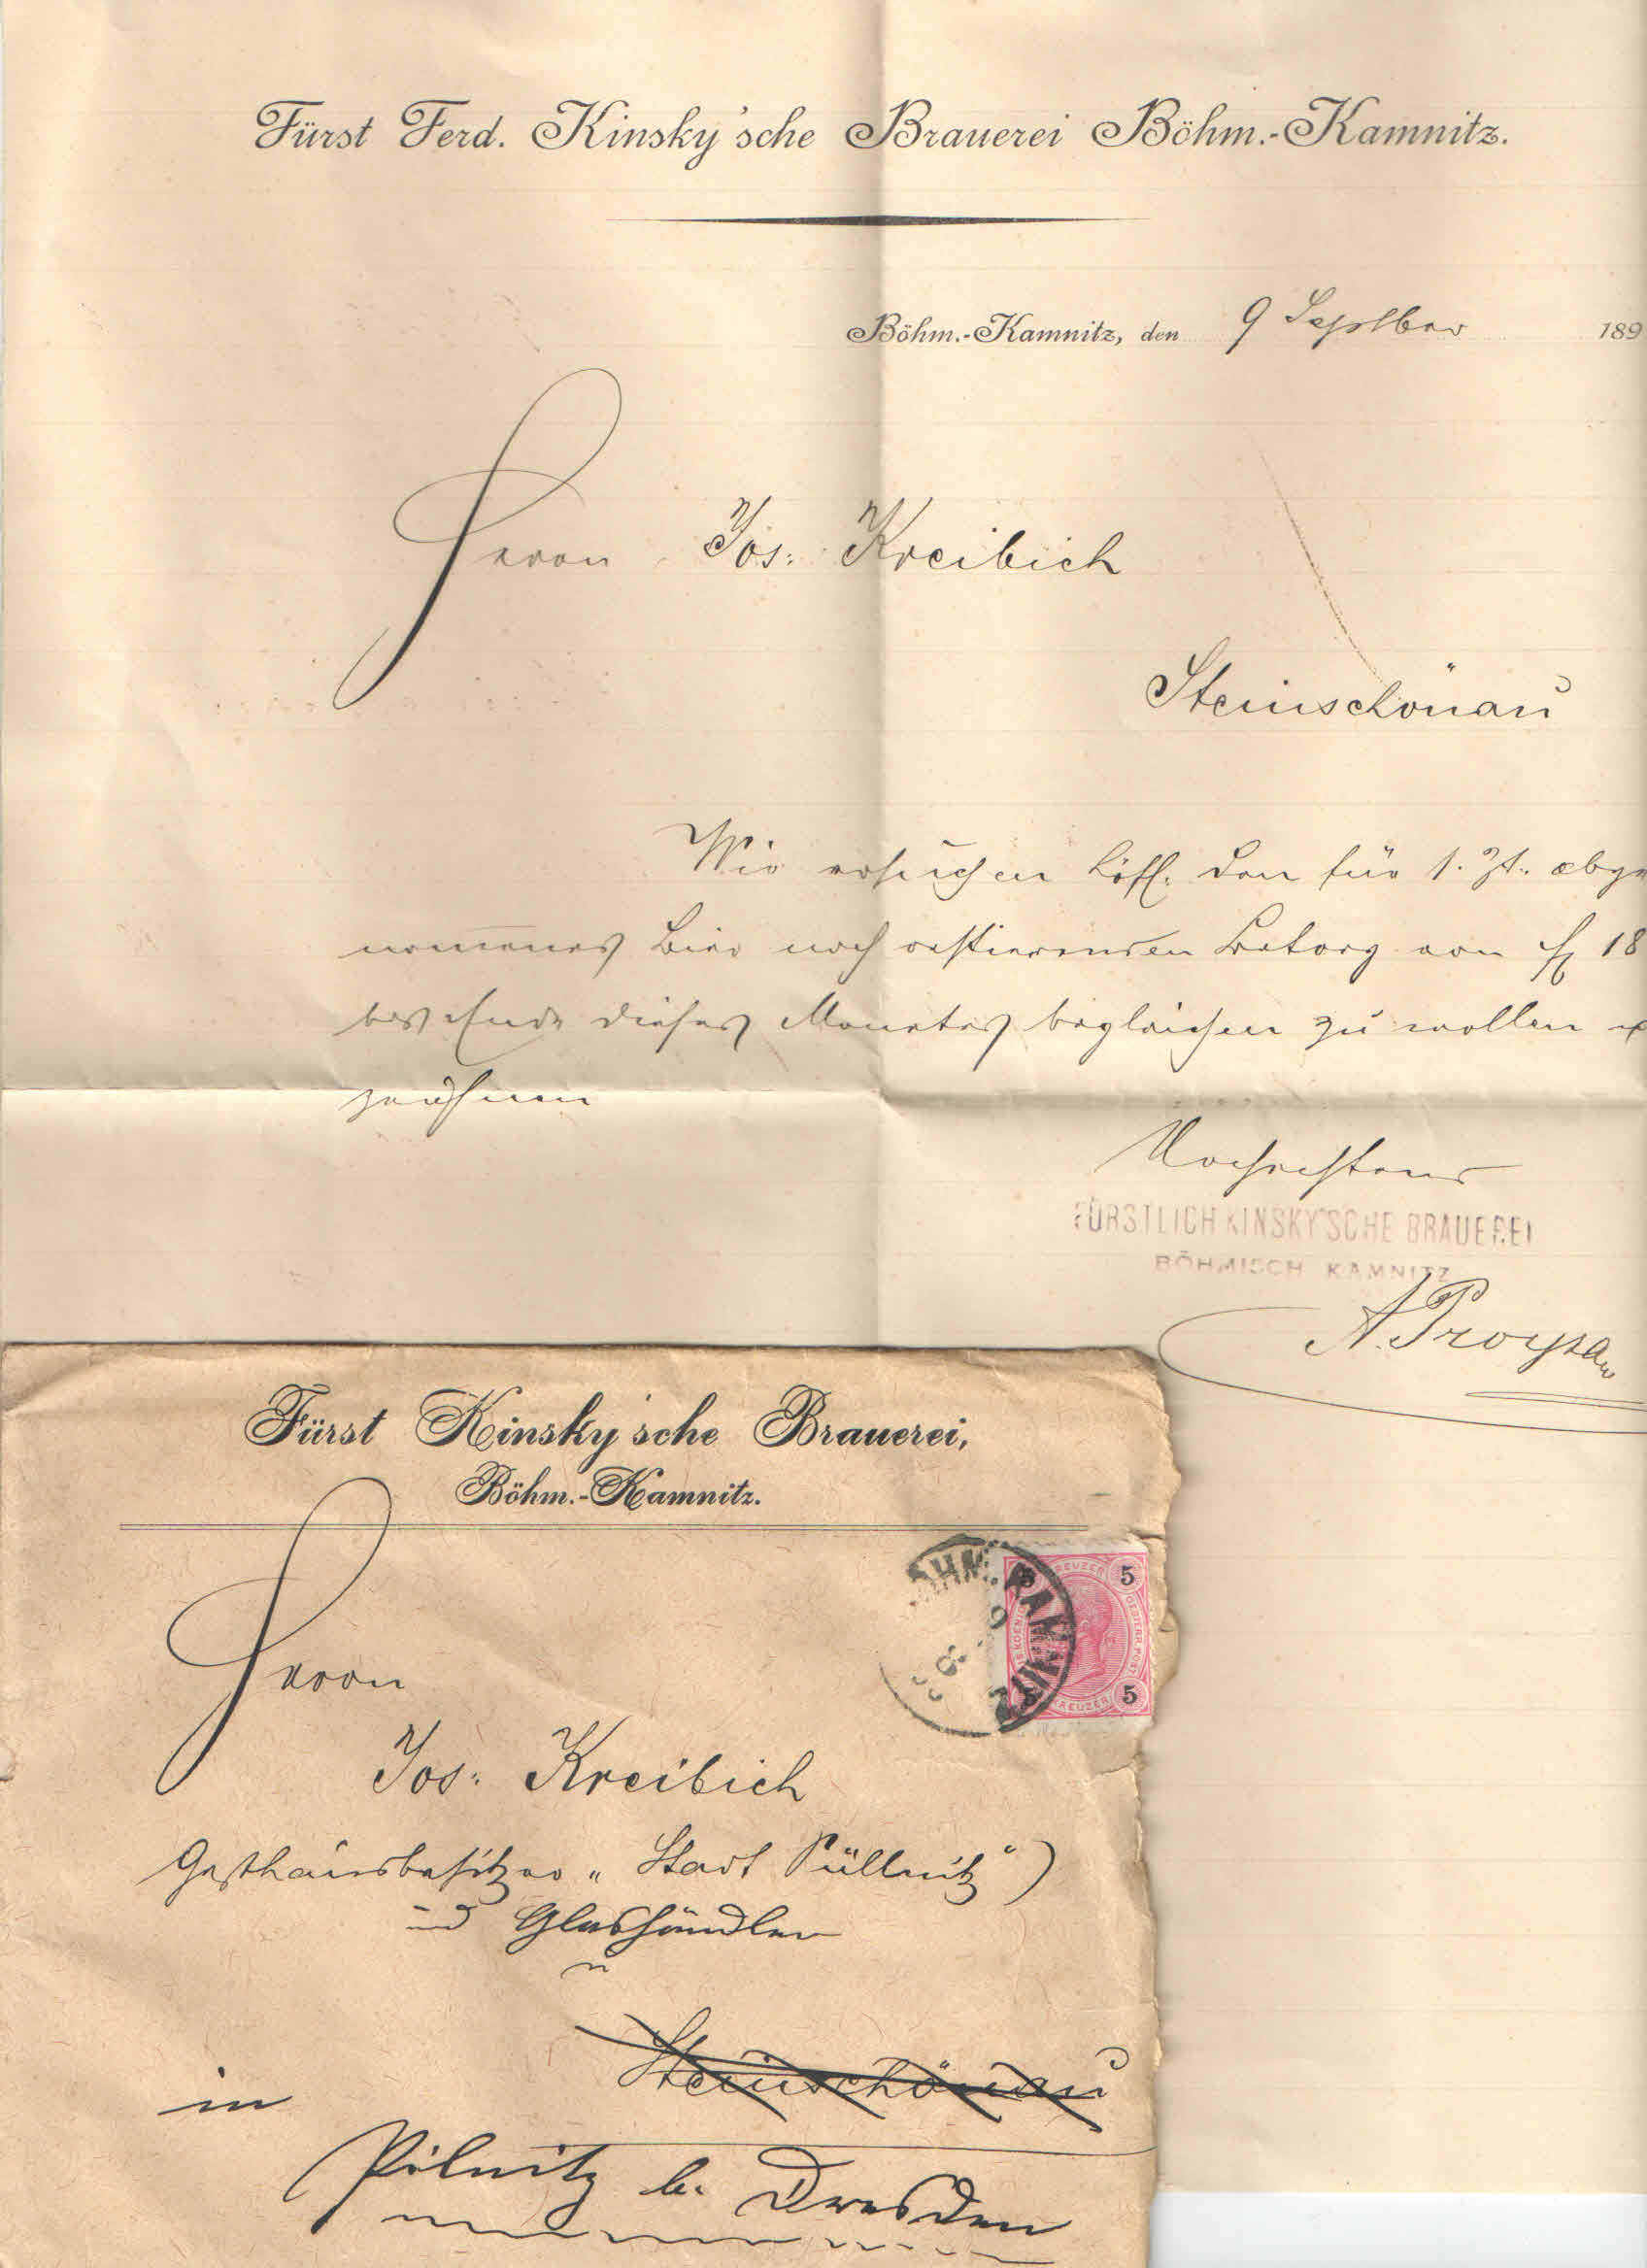 Fürst Ferd. Kinsky'sche Brauerei Böhm.-Kamnitz.
Böhm.-Kamnitz, den 9 Septber 189
Herrn Jos: Kreibich
Steinschönau
Wir ersuchen höfl. den für s. Zt. abge
nomenes Bier noch restierenden Betrag von fl 18
bis Ende dieses Monates begleichen zu wollen &
zeichnen
Hochachtend
FÜRSTLICH KINSKY'SCHE BRAUEREI
BÖHMISCH KAMNITZ
Fürst Kinsky'sche Brauerei,
Böhm.-Kamnitz.
BÖHM. KAMNITZ
9
5
KREUZER
5
5
KREUZER
Herrn
Jos: Kreibich
Gasthausbesitzer „Stadt Püllnitz")
und Glashändler
Steinschönau
in
Pilnitz b. Dresden